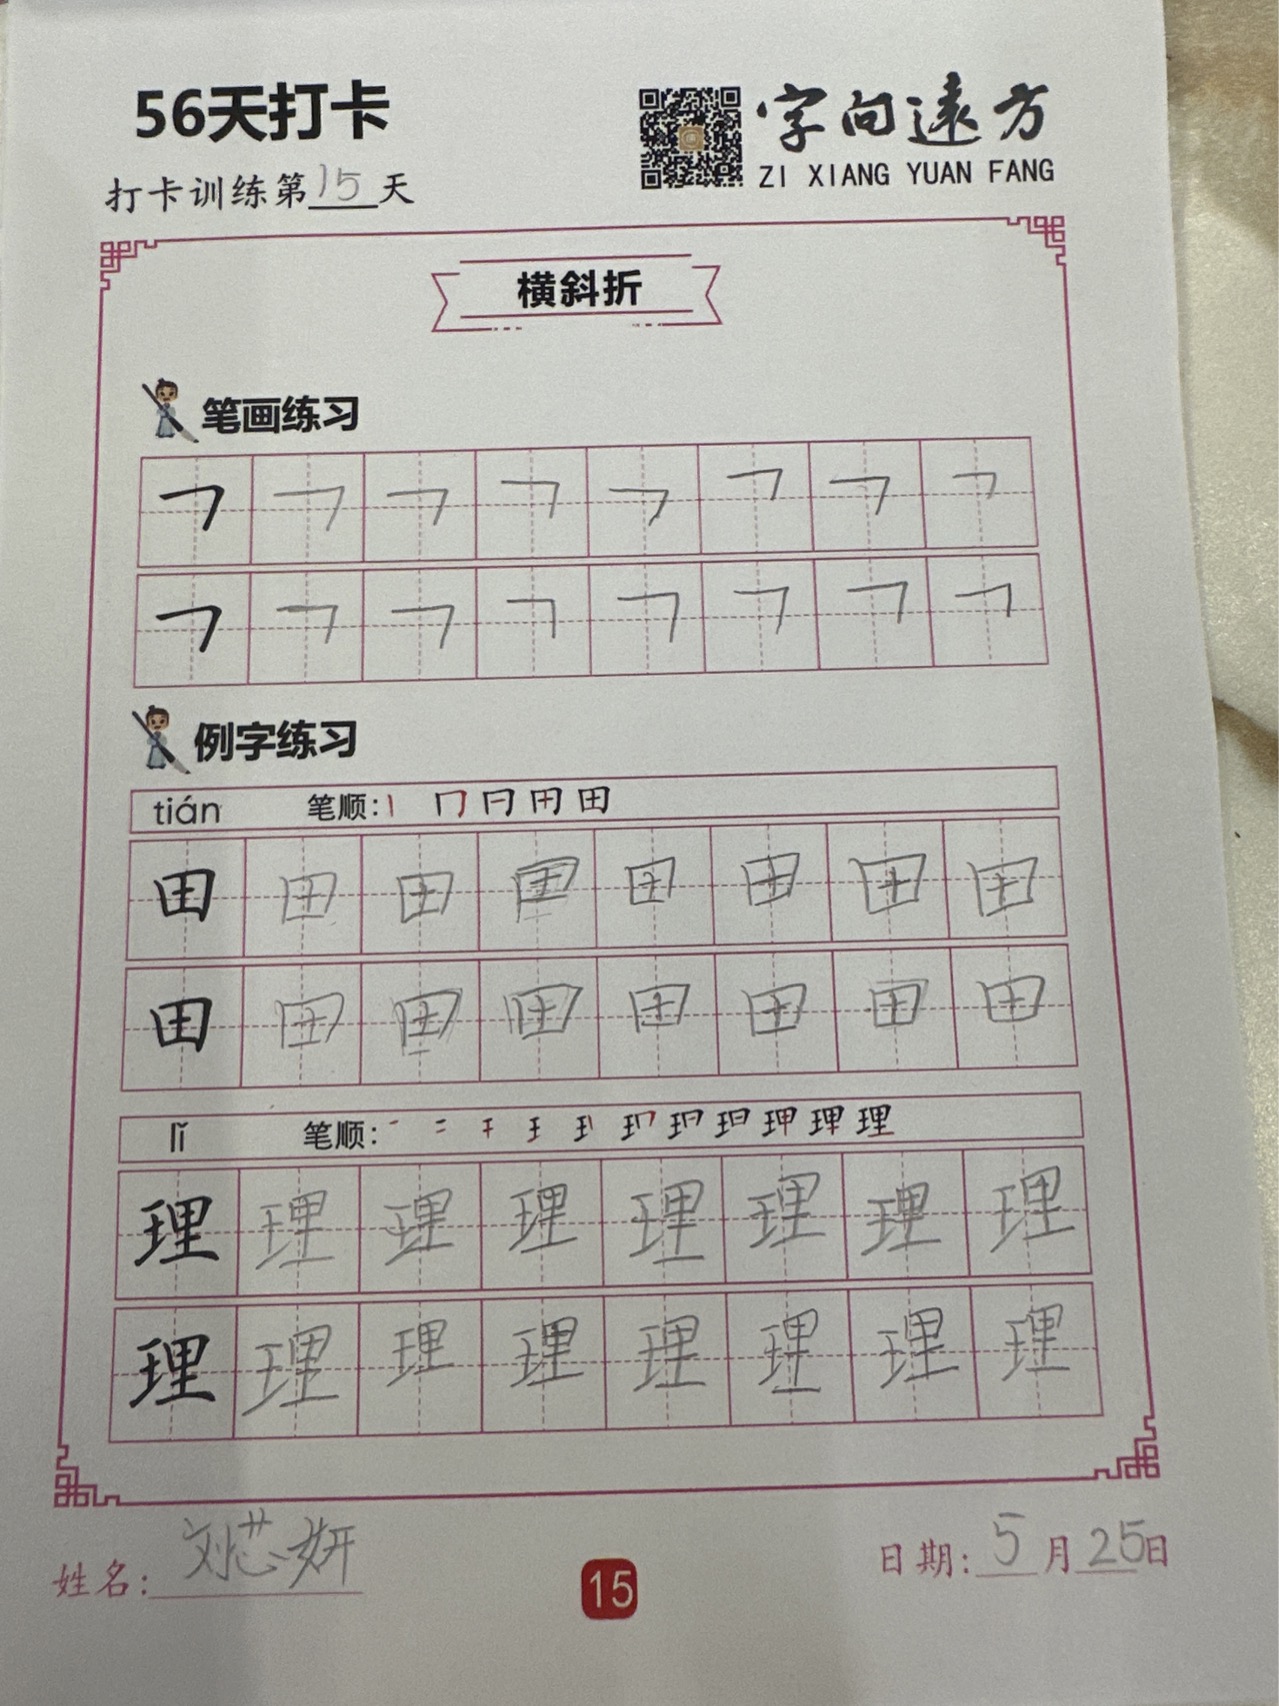 56天打卡
字向远方
ZI XIANG YUAN FANG
打卡训练第15天
横斜折
笔画练习
㇕ ㇕ ㇕ ㇕ ㇕ ㇕ ㇕ ㇕
㇕ ㇕ ㇕ ㇕ ㇕ ㇕ ㇕ ㇕
例字练习
tián 笔顺:丨 冂 冃 田 田
田 田 田 田 田 田 田 田
田 田 田 田 田 田 田 田
lǐ 笔顺:
理 理 理 理 理 理 理 理
理 理 理 理 理 理 理 理
姓名:刘芯妍
15
日期:5月25日